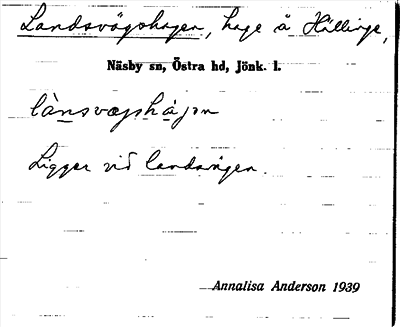 Landsvägshagen, hage å Hällinge,
Näsby sn, Östra hd, Jönk. l.
lànsvægshàjən
Ligger vid landsvägen.
Annalisa Anderson 1939